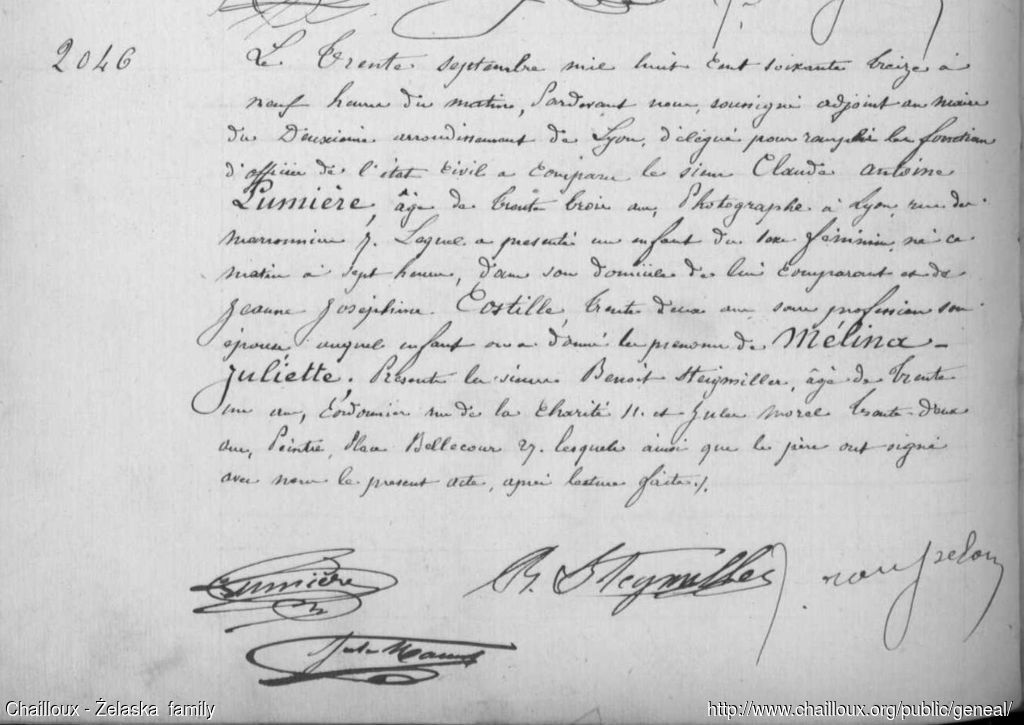 2046
Le Trente septembre mil huit cent soixante treize à
neuf heures du matin, Pardevant nous, soussigné adjoint au maire
du Deuxième arrondissement de Lyon, délégué pour remplir les fonctions
d'officier de l'état civil a comparu le sieur Claude Antoine
Lumière, âgé de trente trois ans, Photographe à Lyon, rue des
Marronniers 7. Lequel a présenté un enfant du sexe féminin, né ce
matin à sept heures, dans son domicile de lui comparant et de
Jeanne Joséphine Costille, trente deux ans sans profession son
épouse auquel enfant on a donné les prénoms de Mélina-
Juliette. Présents les sieurs Benoît Steigmiller, âgé de trente
un ans, Cordonnier rue de la Charité 11. et Jules Morel trente-deux
ans, Peintre, Place Bellecour 27. lesquels ainsi que le père ont signé
avec nous le présent acte, après lecture faite./.
Lumière
B. Steymiller
Chailloux - Żelaska family
http://www.chailloux.org/public/geneal/